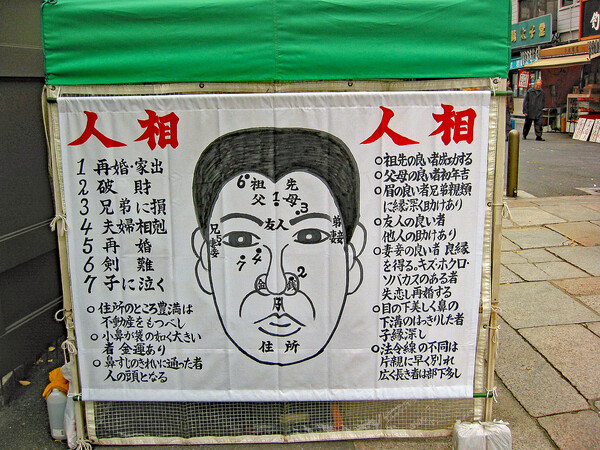 人相
人相
1 再婚・家出
2 破財
3 兄弟に損
4 夫婦相剋
5 再婚
6 剣難
7 子に泣く
○住所のところ豊満は
不動産をもつべし
○小鼻が袋の如く大きい
者金運あり
○鼻すじのきれいに通った者
人の頭となる
6 祖先
父 1 母
3
友人
兄
妻妾
弟
妻妾
4
5
7
2
住所
○祖先の良い者成功する
○父母の良い者初年吉
○眉の良い者兄弟親類
に縁深く助けあり
○友人の良い者
他人の助けあり
○妻妾の良い者 良縁
を得る。キズ・ホクロ・
ソバカスのある者
失恋し再婚する
○目の下美しく鼻の
下溝のはっきりした者
子縁深し
○法令線の不同は
片親に早く別れ
広く長き者は部下多し